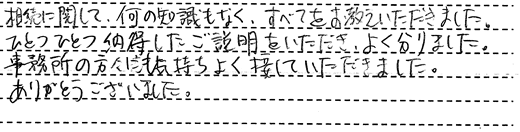 相続に関して、何の知識もなく、すべてをお教えいただきました。
ひとつひとつ納得したご説明をいただき、よく分りました。
事務所の方々にも気持ちよく接していただきました。
ありがとうございました。